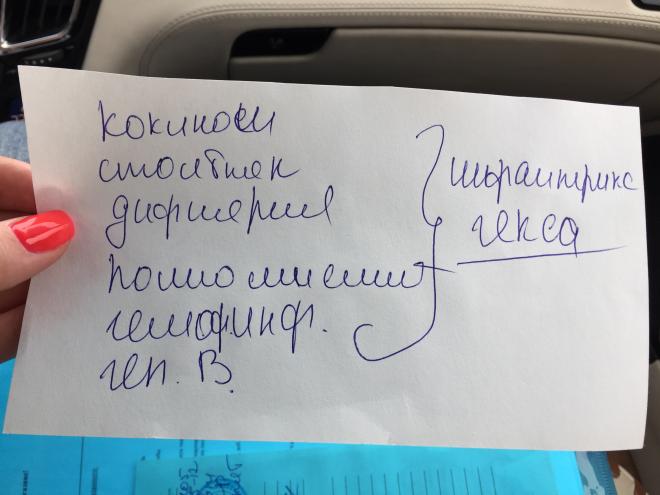 коклюш
столбняк
дифтерия
полиомиелит
гемофинф.
геп. В.
Инфантрикс
гекса